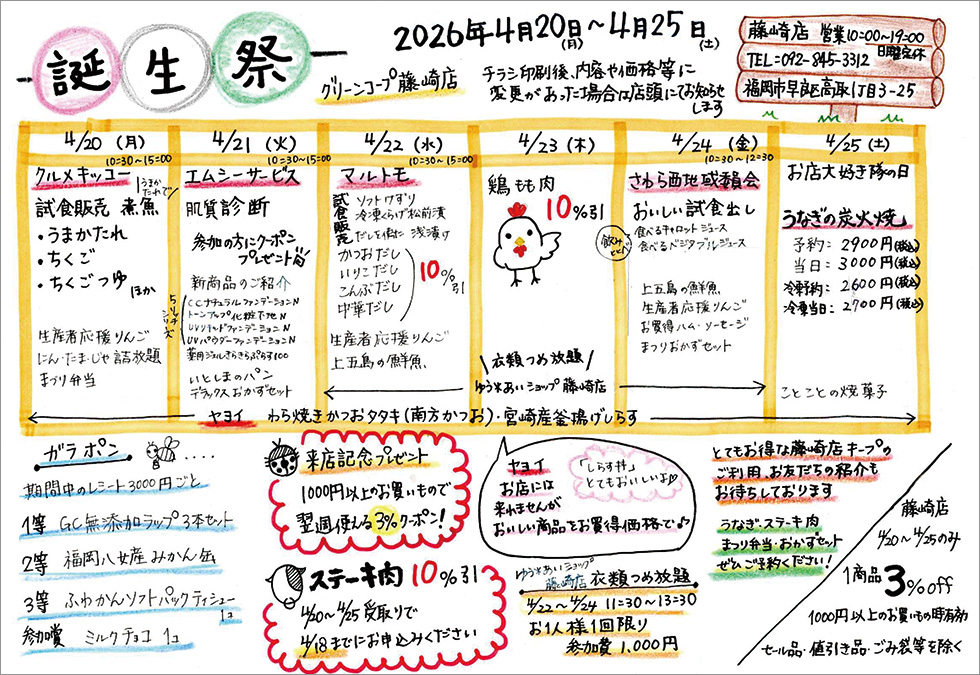 誕生祭
2026年4月20日(月)～4月25日(土)
グリーンコープ藤崎店
チラシ印刷後、内容や価格等に
変更があった場合は店頭にてお知らせ
します
藤崎店 営業10:00～19:00
日曜定休
TEL=092-845-3312
福岡市早良区高取1丁目3-25
4/20(月)
10:30～15:00
クルメキッコー
試食販売 煮魚
うまかたれで
・うまかたれ
・ちくご
・ちくごつゆ ほか
生産者応援りんご
にん・たま・じゃ詰放題
まつり弁当
4/21(火)
10:30～15:00
エムシーサービス
肌質診断
参加の方にクーポン
プレゼント
新商品のご紹介
CCナチュラルファンデーションN
トーンアップ化粧下地N
UVリキッドファンデーションN
UVパウダーファンデーションN
薬用ジェルきらきらぷらす100
いとしまのパン
デラックスおかずセット
4/22(水)
10:30～15:00
マルトモ
試食販売
ソフトけずり
冷凍くらげ松前漬
だしを使た 浅漬け
かつおだし
いりこだし
こんぶだし
中華だし
10%引
生産者応援りんご
上五島の鮮魚
4/23(木)
鶏もも肉
10%引
衣類つめ放題
ゆう*あいショップ藤崎店
4/24(金)
10:30～12:30
さわら西地域委員会
おいしい試食出し
飲み比べ
食べるキャロットジュース
食べるベジタブルジュース
上五島の鮮魚
生産者応援りんご
お買得ハム・ソーセージ
まつりおかずセット
4/25(土)
お店大好き隊の日
うなぎの炭火焼
予約：2900円(税込)
当日：3000円(税込)
冷凍予約：2600円(税込)
冷凍当日：2700円(税込)
ことことの焼菓子
ヤヨイ わら焼きかつおタタキ(南方かつお)・宮崎産釜揚げしらす
ガラポン
期間中のレシート3000円ごと
1等 GC無添加ラップ3本セット
2等 福岡八女産みかん缶
3等 ふわかんソフトパックティシュー
1コ
参加賞 ミルクチョコ 1コ
来店記念プレゼント
1000円以上のお買いもので
翌週使える3%クーポン!
ステーキ肉 10%引
4/20～4/25受取りで
4/18までにお申込みください
ヤヨイ
お店には
来れませんが
おいしい商品をお買得価格で♪
「しらす丼」
とてもおいしいよ♡
ゆう*あいショップ
藤崎店
衣類つめ放題
4/22～4/24 11:30～13:30
お1人様1回限り
参加費 1,000円
とてもお得な藤崎店キープの
ご利用、お友だちの紹介も
お待ちしております
うなぎ・ステーキ肉
まつり弁当・おかずセット
ぜひご予約ください!
藤崎店
4/20～4/25のみ
1商品3%off
1000円以上のお買いもの時有効
セール品・値引き品・ごみ袋等を除く